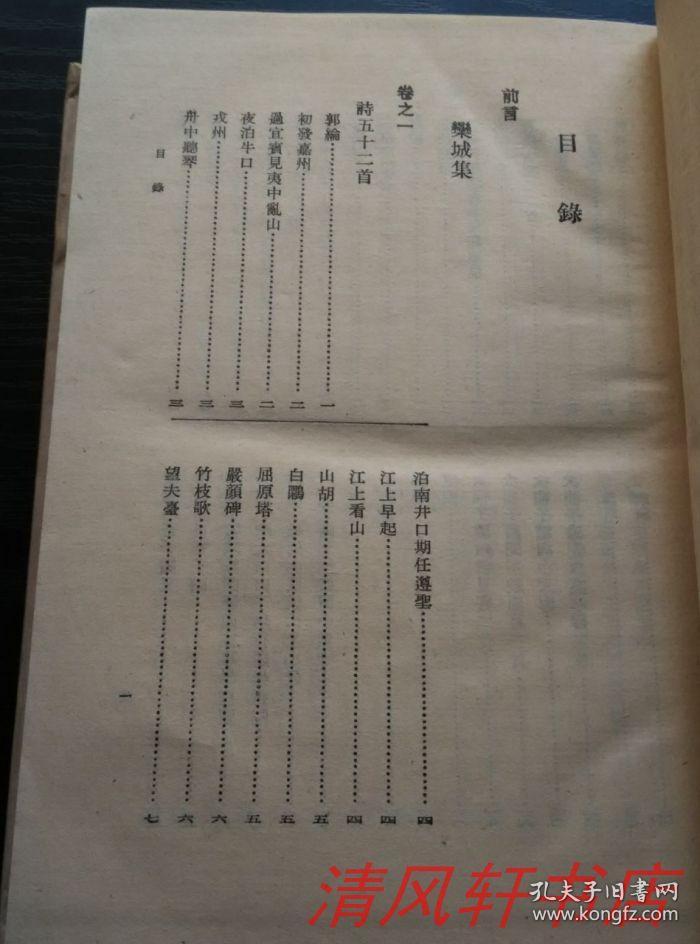 目錄
前言
欒城集
卷之一
詩五十二首
郭綸……一
初發嘉州……二
過宜賓見夷中亂山……二
夜泊牛口……三
戎州……三
舟中聽琴……三
泊南井口期任遵聖……四
江上早起……四
江上看山……四
山胡……五
白鷴……五
屈原塔……五
嚴顏碑……六
竹枝歌……六
望夫臺……七
目錄
一
清风轩书店
孔夫子旧书网
www.kongfz.com